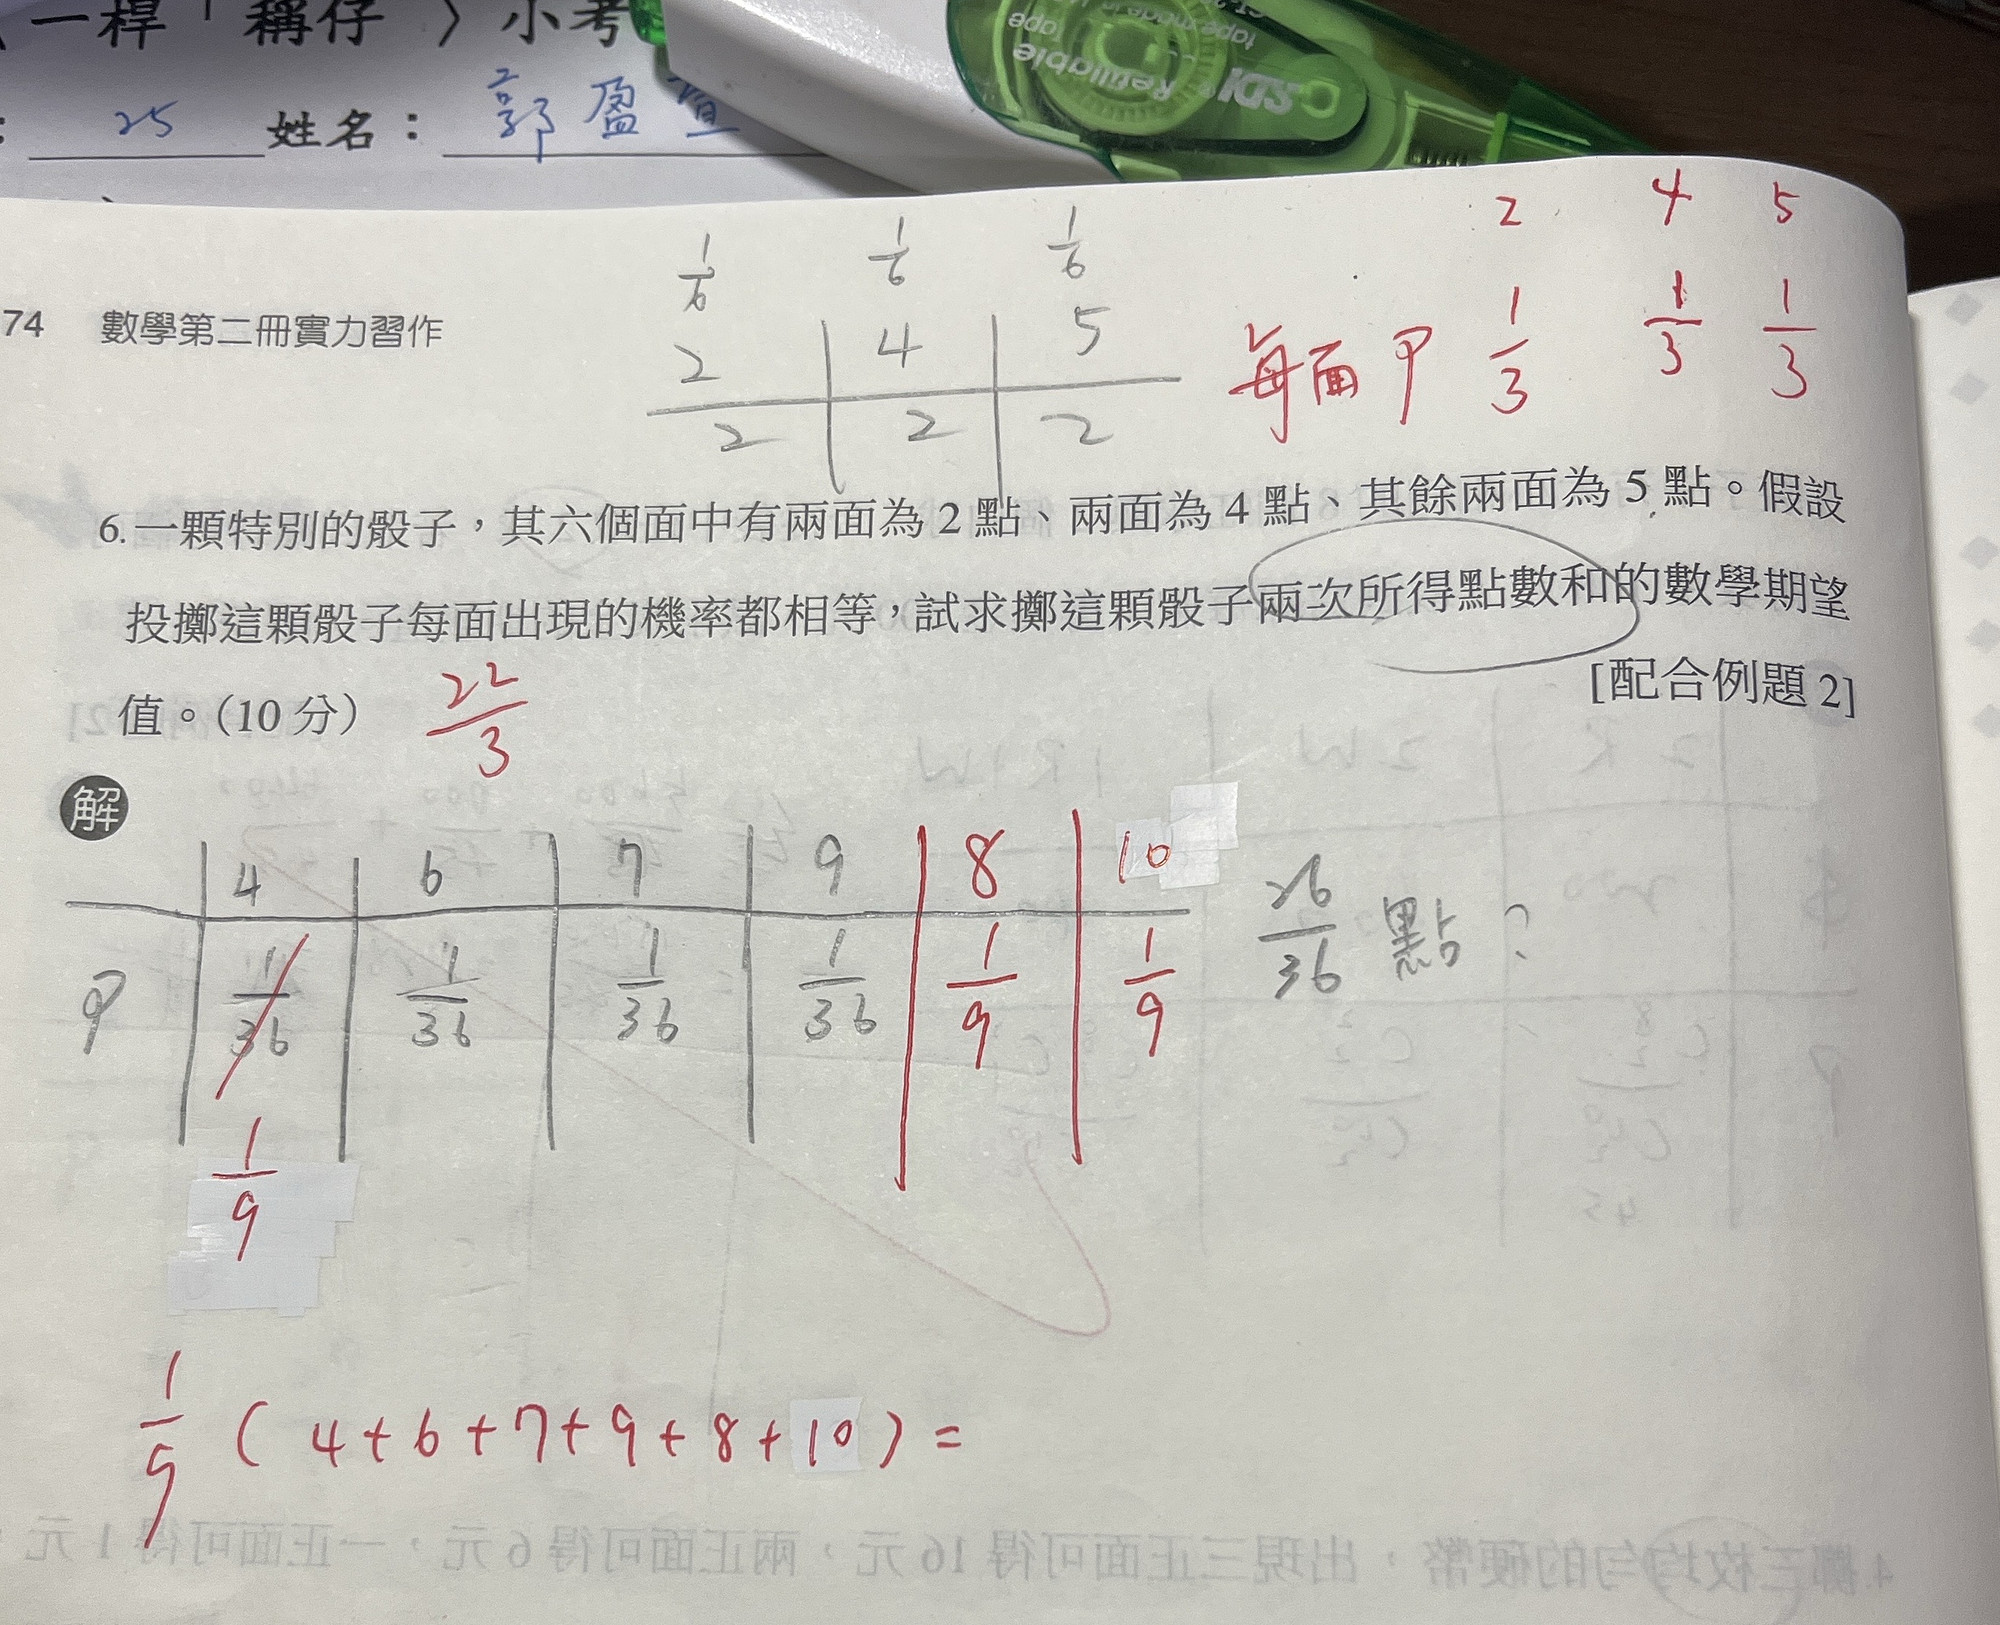 一桿「稱仔 〉小考
: 25 姓名： 郭盈萱
SDI Refillable tape
74 數學第二冊實力習作
1/6 1/6 1/6
2 4 5
2 2 2
2 4 5
每面 P 1/3 1/3 1/3
6. 一顆特別的骰子，其六個面中有兩面為 2 點、兩面為 4 點、其餘兩面為 5 點。假設
投擲這顆骰子每面出現的機率都相等，試求擲這顆骰子兩次所得點數和的數學期望
值。（10 分） 22/3
[配合例題 2]
解
4 6 7 9 8 10
P 1/36 1/36 1/36 1/36 1/9 1/9
26/36 點？
1/9
1/9 ( 4+6+7+9+8+10 ) =
4.擲三枚均勻的硬幣，出現三正面可得 16 元，兩正面可得 6 元，一正面可得 1 元